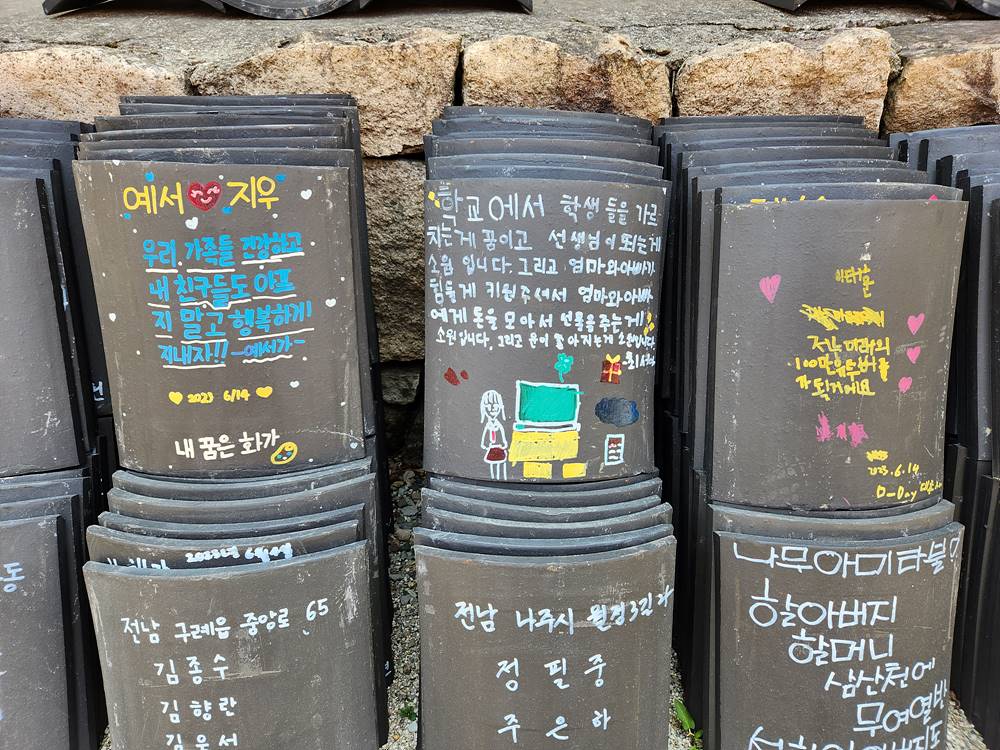 예서 지우
우리 가족들 건강하고
내 친구들도 아프
지 말고 행복하게
지내자!! -예서가-
2023 6/14
내 꿈은 화가
학교에서 학생 들을 가르
치는게 꿈이고 선생님이 되는게
소원 입니다. 그리고 엄마와아빠가
힘들게 키워주셔서 엄마와아빠
에게 돈을 모아서 선물을주는게
소원입니다. 그리고 운이 좋아지는게 소원입니다.
저는 미래의
100만유튜버를
2023.6.14
D-Day
2023년 6월
전남 구례읍 중앙로 65
김종수
김향란
김윤서
전남 나주시
정필중
주은하
나무아미타불
할아버지
할머니
삼산천에
무여열반
동